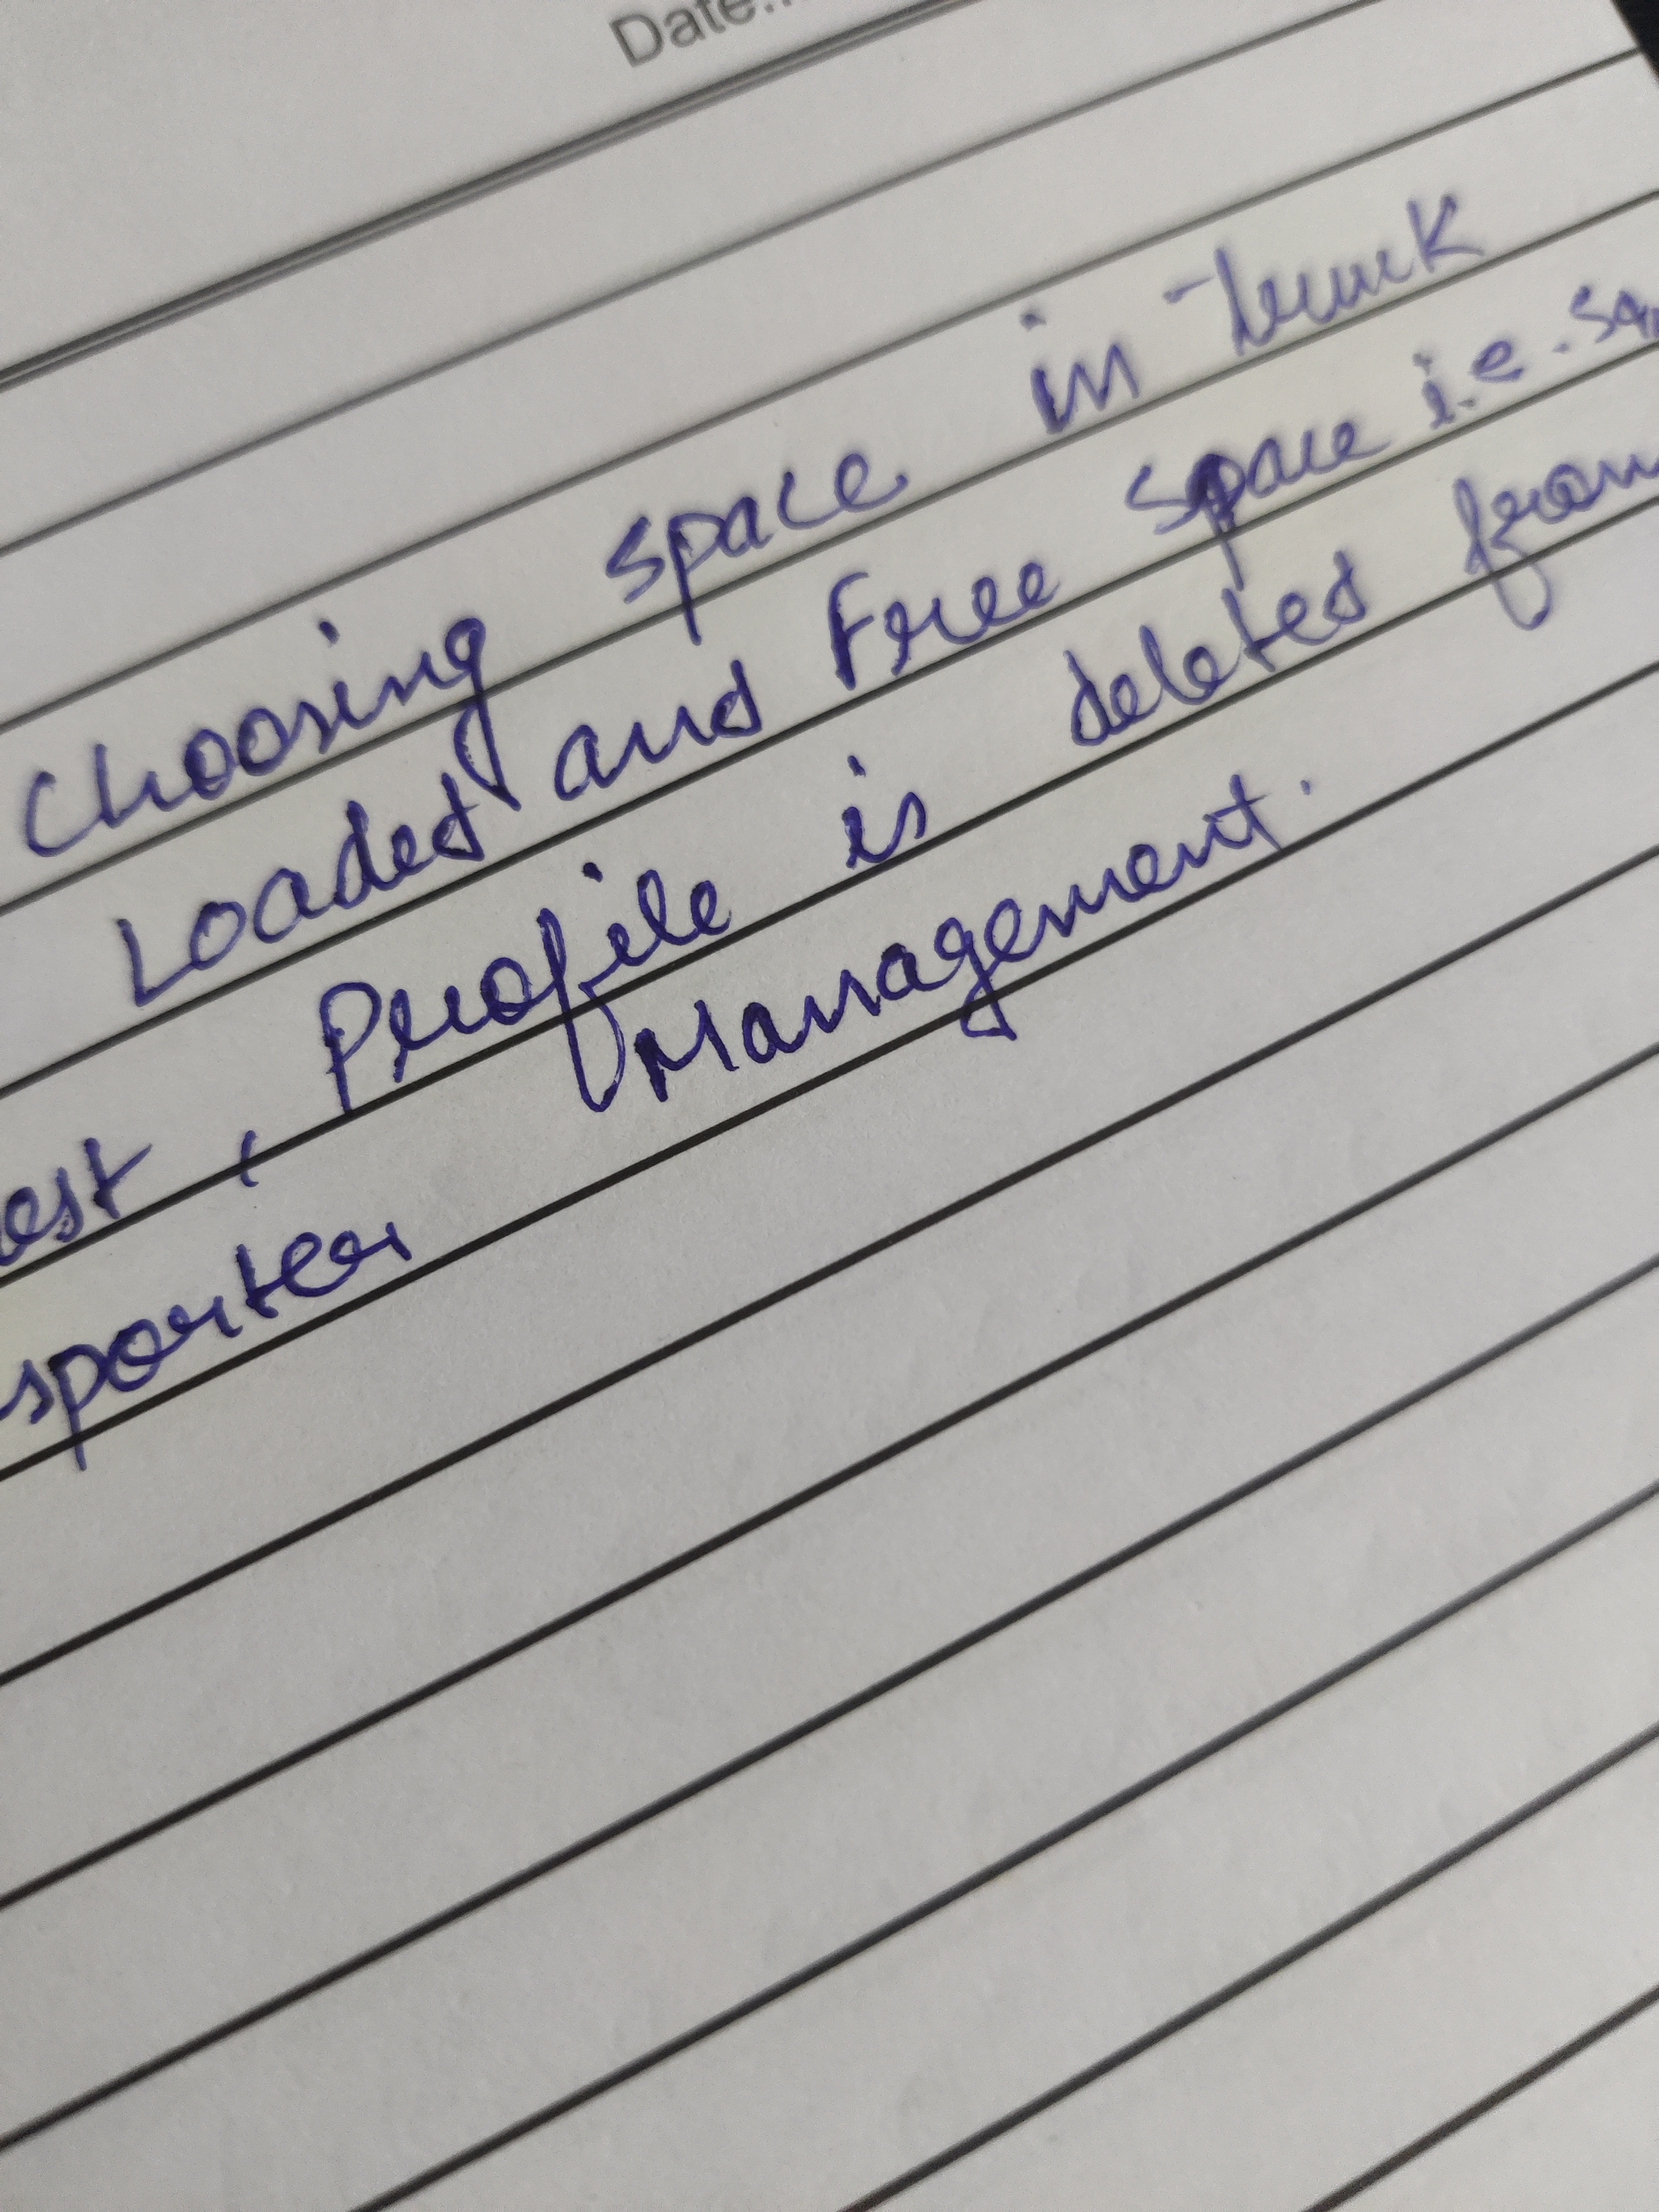 Date...
Choosing space in truck
Loaded and Free space i.e. sa
est, Profile is deleted from
sporter Management.